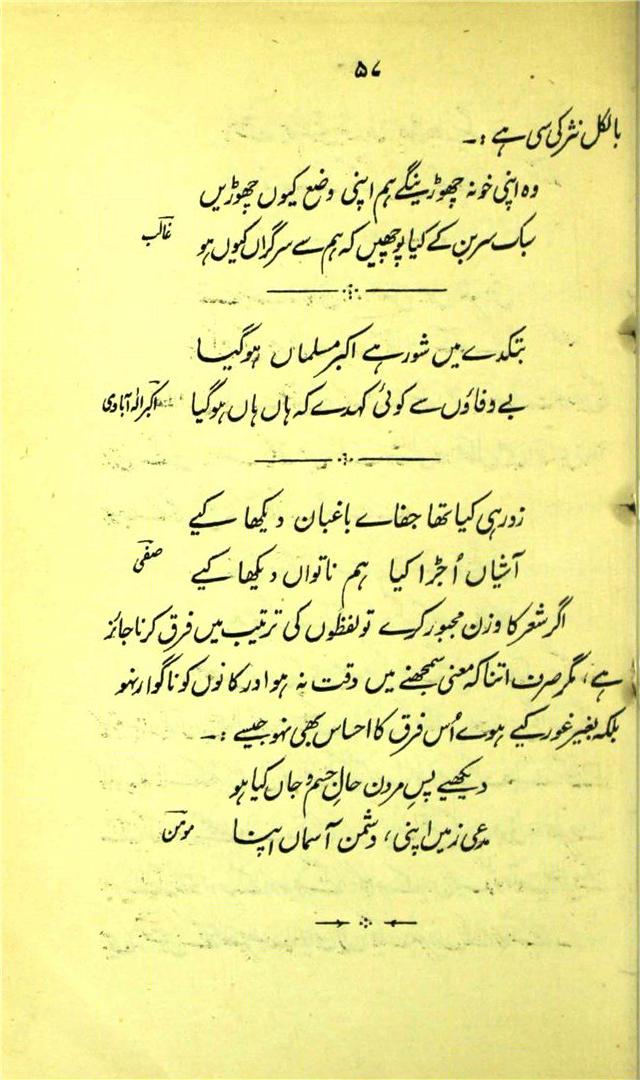 ۵۷
بالکل نثر کی سی ہے :۔
وہ اپنی خو نہ چھوڑینگے ہم اپنی وضع کیوں چھوڑیں
سبک سر بن کے کیا پوچھیں کہ ہم سے سرگراں کیوں ہو غالب
بتکدے میں شور ہے اکبر مسلماں ہوگیا
بے وفاؤں سے کوئی کہدے کہ ہاں ہاں ہوگیا اکبر الہ آبادی
زور ہی کیا تھا جفاے باغبان دیکھا کیے
آشیاں اُجڑا کیا ہم ناتواں دیکھا کیے صفی
اگر شعر کا وزن مجبور کرے تو لفظوں کی ترتیب میں فرق کرنا جائز
ہے، مگر صرف اتنا کہ معنی سمجھنے میں دقت نہ ہو اور کانوں کو ناگوار نہو
بلکہ بغیر غور کیے ہوے اُس فرق کا احساس بھی نہو جیسے :۔
دیکھیے پسِ مردن حالِ جسم و جاں کیا ہو
مدعی زمیں اپنی، دشمن آسماں اپنا مومن